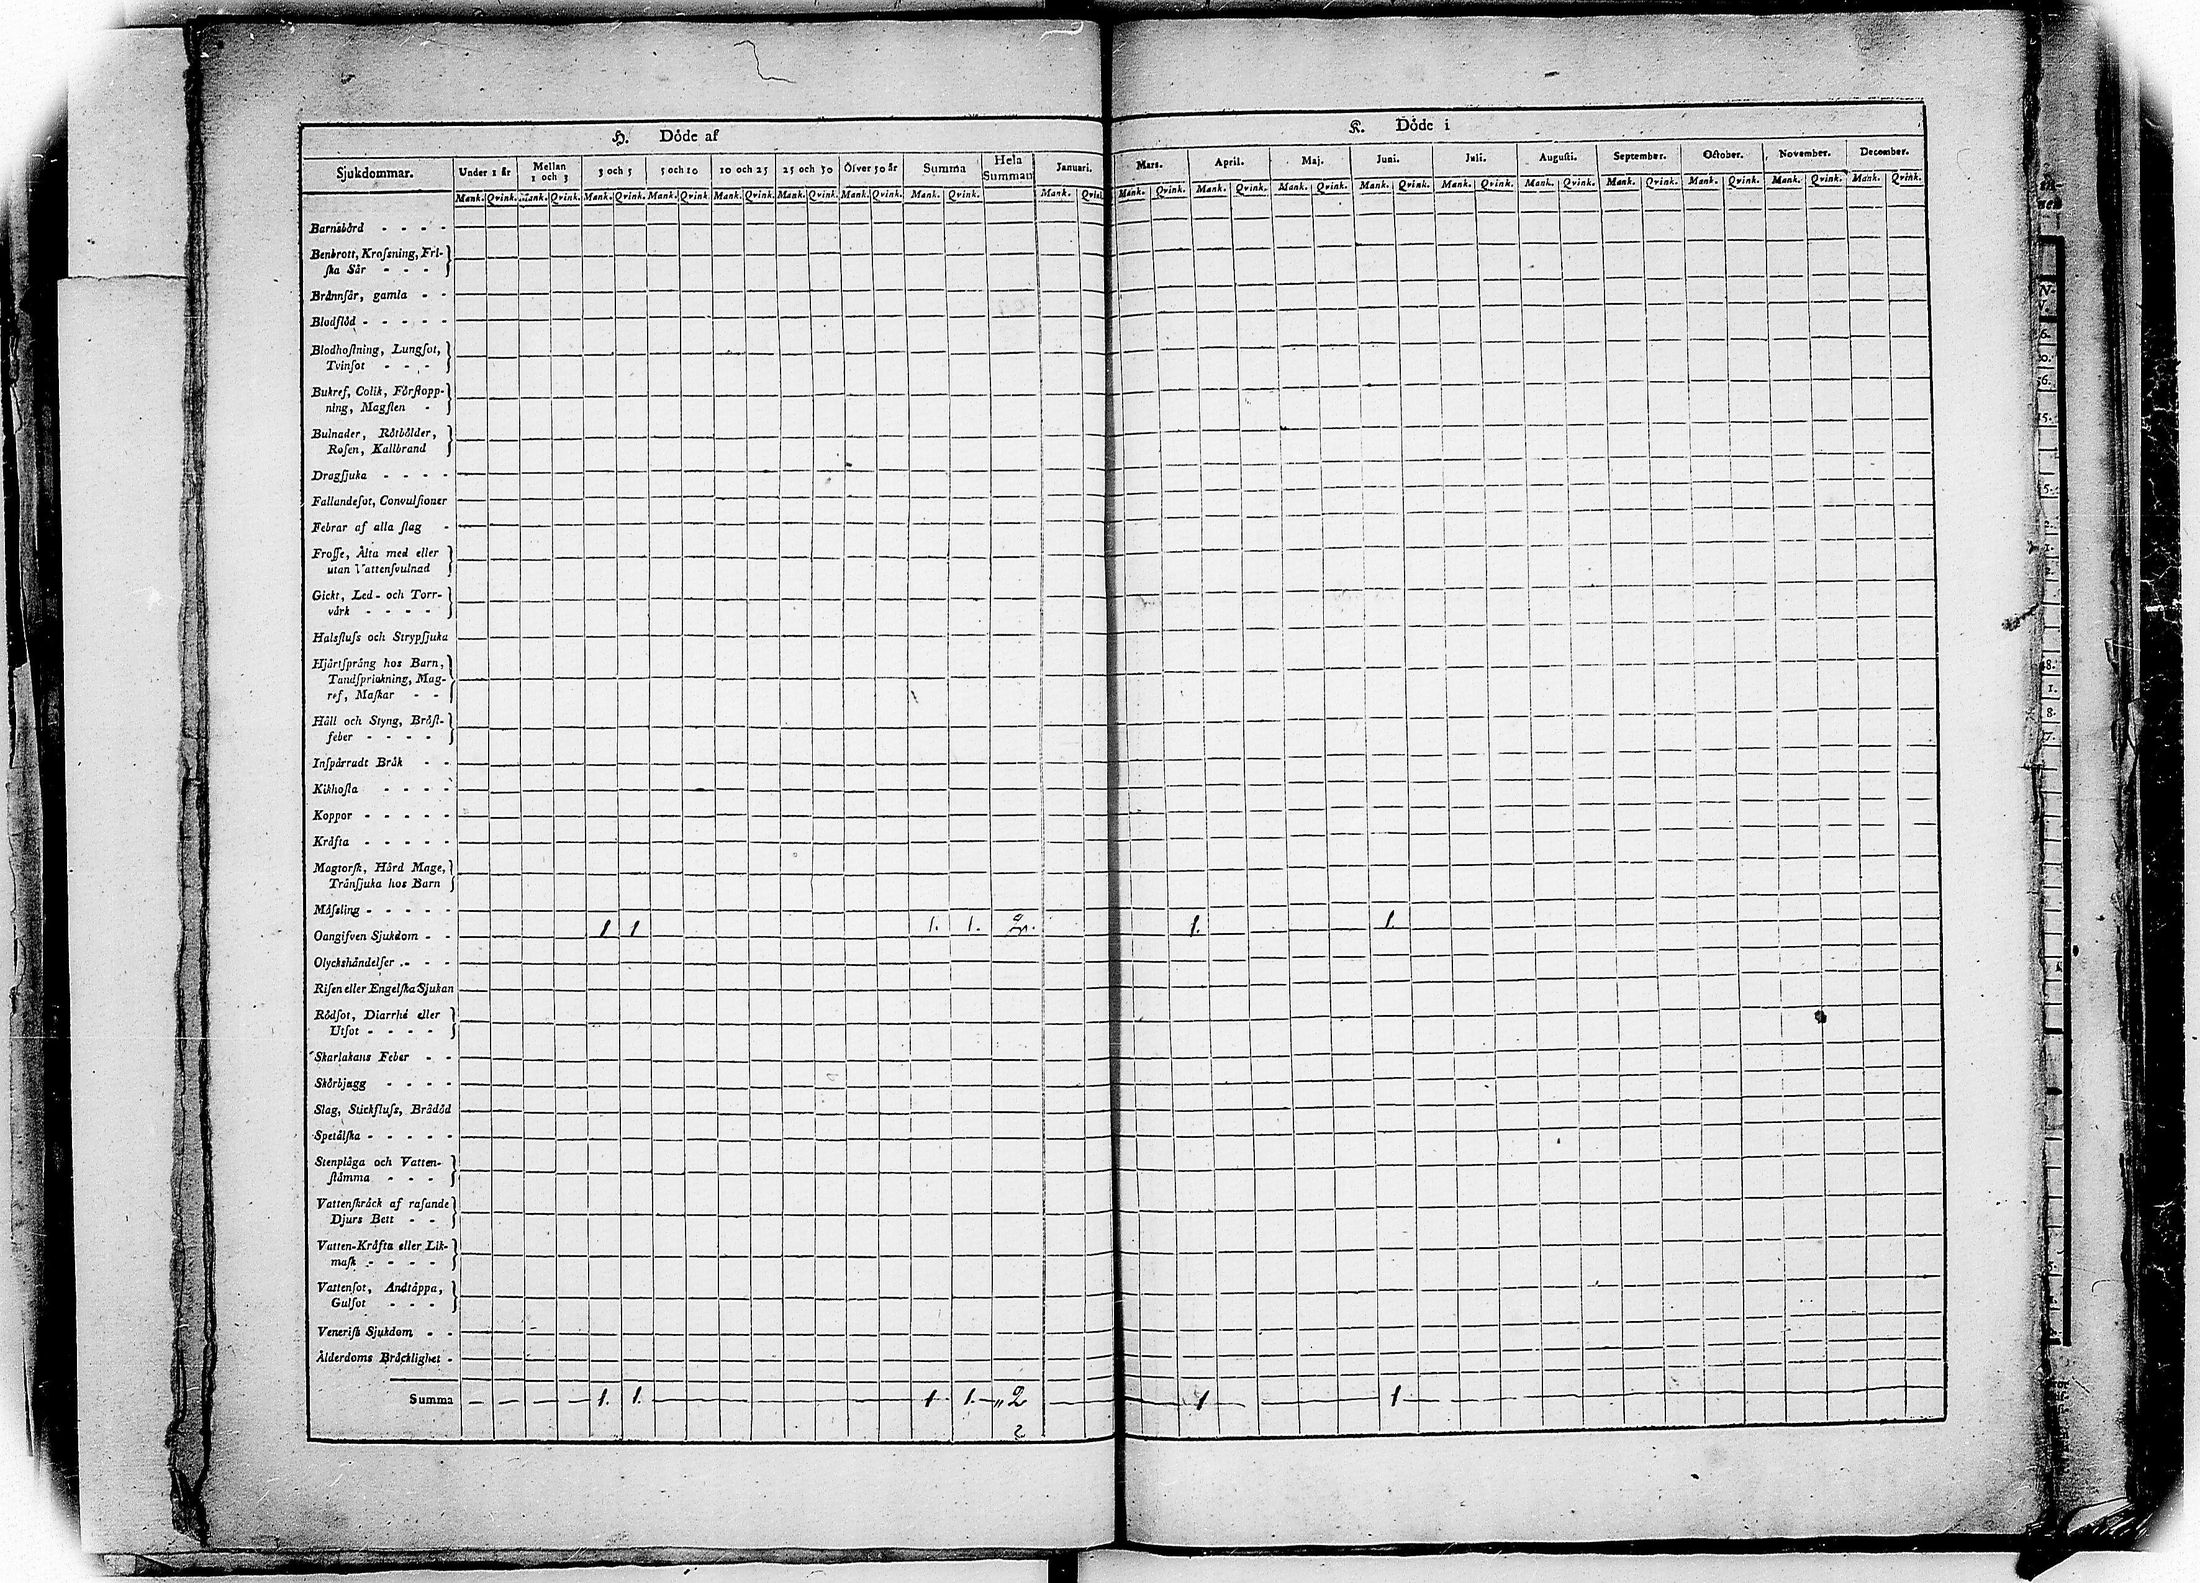 H. Döde af
K. Döde i
Sjukdommar. Under 1 år Mellan 1 och 3 3 och 5 5 och 10 10 och 25 25 och 50 Öfver 50 år Summa Hela Summan Januari. Mars. April. Maj. Juni. Juli. Augusti. September. October. November. December.
Mank. Qvink. Mank. Qvink. Mank. Qvink. Mank. Qvink. Mank. Qvink. Mank. Qvink. Mank. Qvink. Mank. Qvink. Mank. Mank. Qvink. Mank. Qvink. Mank. Qvink. Mank. Qvink. Mank. Qvink. Mank. Qvink. Mank. Qvink. Mank. Qvink. Mank. Qvink. Mank. Qvink.
Barnsbörd - - - -
Benbrott, Krossning, Fri-
ska Sår - - -
Brännsår, gamla - -
Blodflöd - - - - -
Blodhostning, Lungsot,
Tvinsot - - -
Bukref, Colik, Förstopp-
ning, Magsten -
Bulnader, Rötbölder,
Rosen, Kallbrand
Dragsjuka - - - -
Fallandesot, Convulsioner
Febrar af alla slag -
Frosse, Älta med eller
utan Vattensvulnad
Gickt, Led- och Torr-
värk - - - -
Halsfluss och Strypsjuka
Hjärtsprång hos Barn,
Tandsprickning, Mag-
ref, Maskar - -
Håll och Styng, Bröst-
feber - - - -
Inspärradt Bråk - -
Kikhosta - - - -
Koppor - - - - -
Kräfta - - - - -
Magtorsk, Hård Mage,
Trånsjuka hos Barn
Mässling - - - - -
Oangifven Sjukdom - - 1 1 1. 1. 2. 1. 1.
Olyckshändelser - - -
Risen eller Engelska Sjukan
Rödsot, Diarrhé eller
Utsot - - - -
Skarlakans Feber - -
Skörbjugg - - - -
Slag, Stickfluss, Brådöd
Spetälska - - - - -
Stenplåga och Vatten-
stämma - - -
Vattenskräck af rasande
Djurs Bett - -
Vatten-Kräfta eller Lik-
mask - - - -
Vattensot, Andtäppa,
Gulsot - - -
Venerisk Sjukdom - -
Ålderdoms Bräcklighet -
Summa 1. 1. 1 1. „ 2 1 1
2